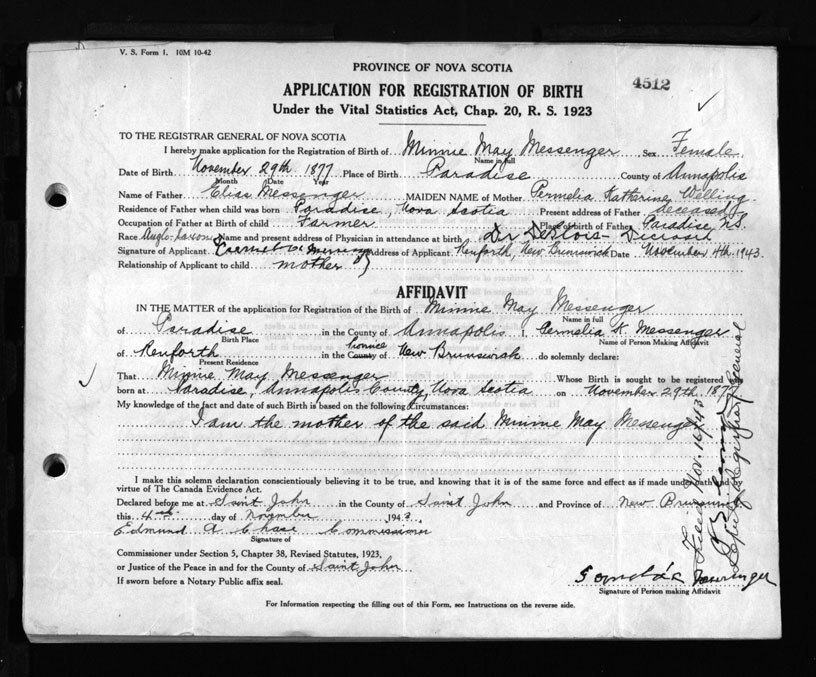 V. S. Form 1. 10M 10-42
PROVINCE OF NOVA SCOTIA
4512
APPLICATION FOR REGISTRATION OF BIRTH
Under the Vital Statistics Act, Chap. 20, R. S. 1923
TO THE REGISTRAR GENERAL OF NOVA SCOTIA
I hereby make application for the Registration of Birth of Minnie May Messenger Sex Female
Name in full
Date of Birth November 29th 1877 Place of Birth Paradise County of Annapolis
Month Date Year
Name of Father Elias Messenger MAIDEN NAME of Mother Permelia Katherine
Residence of Father when child was born Paradise, Nova Scotia Present address of Father deceased
Occupation of Father at Birth of child Farmer Place of birth of Father Paradise N.S.
Race Anglo-Saxon Name and present address of Physician in attendance at birth Dr
Signature of Applicant Address of Applicant Renforth, New Brunswick Date November 4th 1943.
Relationship of Applicant to child mother
AFFIDAVIT
IN THE MATTER of the application for Registration of the Birth of Minnie May Messenger
Name in full
of Paradise in the County of Annapolis I, Permelia K. Messenger
Birth Place Name of Person Making Affidavit
of Renforth in the County of Province New Brunswick do solemnly declare:
Present Residence
That Minnie May Messenger Whose Birth is sought to be registered was
born at Paradise, Annapolis County, Nova Scotia on November 29th 1877
My knowledge of the fact and date of such Birth is based on the following Circumstances:
I am the mother of the said Minnie May Messenger
I make this solemn declaration conscientiously believing it to be true, and knowing that it is of the same force and effect as if made under oath and
virtue of The Canada Evidence Act.
Declared before me at Saint John in the County of Saint John and Province of New Brunswick
this 4th day of November 1943.
Edmund A Chase Commissioner
Signature of
Commissioner under Section 5, Chapter 38, Revised Statutes, 1923,
or Justice of the Peace in and for the County of Saint John
If sworn before a Notary Public affix seal.
Signature of Person making Affidavit
For Information respecting the filling out of this Form, see Instructions on the reverse side.
Filed Nov. 16/43
Deputy Registrar General